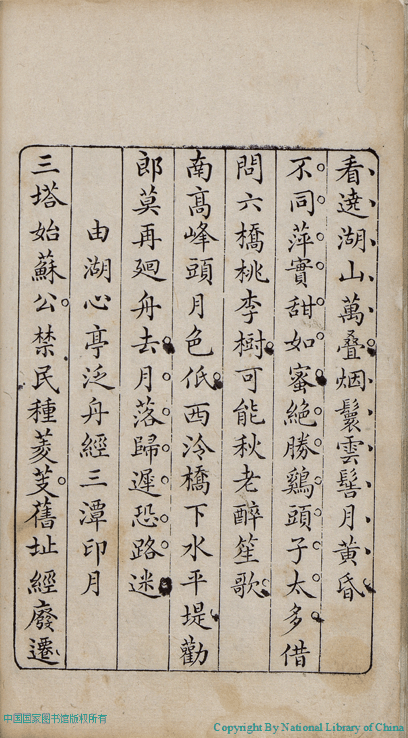 看遶湖山萬叠烟鬟雲髻月黃昏
不同萍實甜如蜜絶勝鷄頭子太多借
問六橋桃李樹可能秋老醉笙歌
南高峰頭月色低西泠橋下水平堤勸
郎莫再廻舟去月落歸遲恐路迷
由湖心亭泛舟經三潭印月
三塔始蘇公禁民種菱芰舊址經廢遷
中国国家图书馆版权所有
Copyright By National Library of China